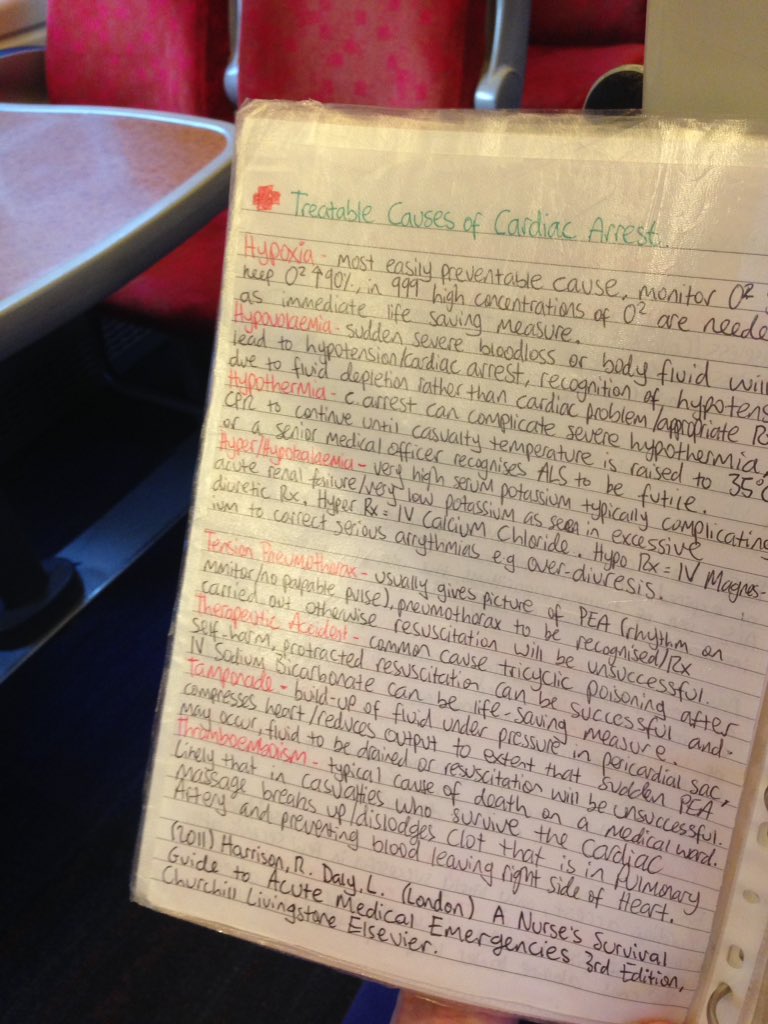 Treatable Causes of Cardiac Arrest.
Hypoxia - most easily preventable cause, monitor O²
keep O² ↑90%, in 999 high concentrations of O² are neede
as immediate life saving measure.
Hypovolaemia - sudden severe bloodloss or body fluid will
lead to hypotension/cardiac arrest, recognition of hypotens
due to fluid depletion rather than cardiac problem/appropriate Rx
Hypothermia - c.arrest can complicate severe hypothermia,
CPR to continue until casualty temperature is raised to 35°C
or a senior medical officer recognises ALS to be futile.
Hyper/Hypokalaemia - very high serum potassium typically complicating
acute renal failure/very low potassium as seen in excessive
diuretic Rx. Hyper Rx = IV Calcium Chloride. Hypo Rx = IV Magnes-
ium to correct serious arrythmias e.g over-diuresis.
Tension Pneumothorax - usually gives picture of PEA (rhythm on
monitor/no palpable pulse), pneumothorax to be recognised/Rx
carried out otherwise resuscitation will be unsuccessful.
Therapeutic Accident - common cause tricyclic poisoning after
self-harm, protracted resuscitation can be successful and
IV Sodium Bicarbonate can be life-saving measure.
Tamponade - build-up of fluid under pressure in pericardial sac,
compresses heart/reduces output to extent that sudden PEA
may occur, fluid to be drained or resuscitation will be unsuccessful.
Thromboembolism - typical cause of death on a medical ward.
Likely that in casualties who survive the cardiac
massage breaks up/dislodges clot that is in Pulmonary
Artery and preventing blood leaving right side of Heart.
(2011) Harrison, R. Daly, L. (London) A Nurse's Survival
Guide to Acute Medical Emergencies 3rd Edition,
Churchill Livingstone Elsevier.